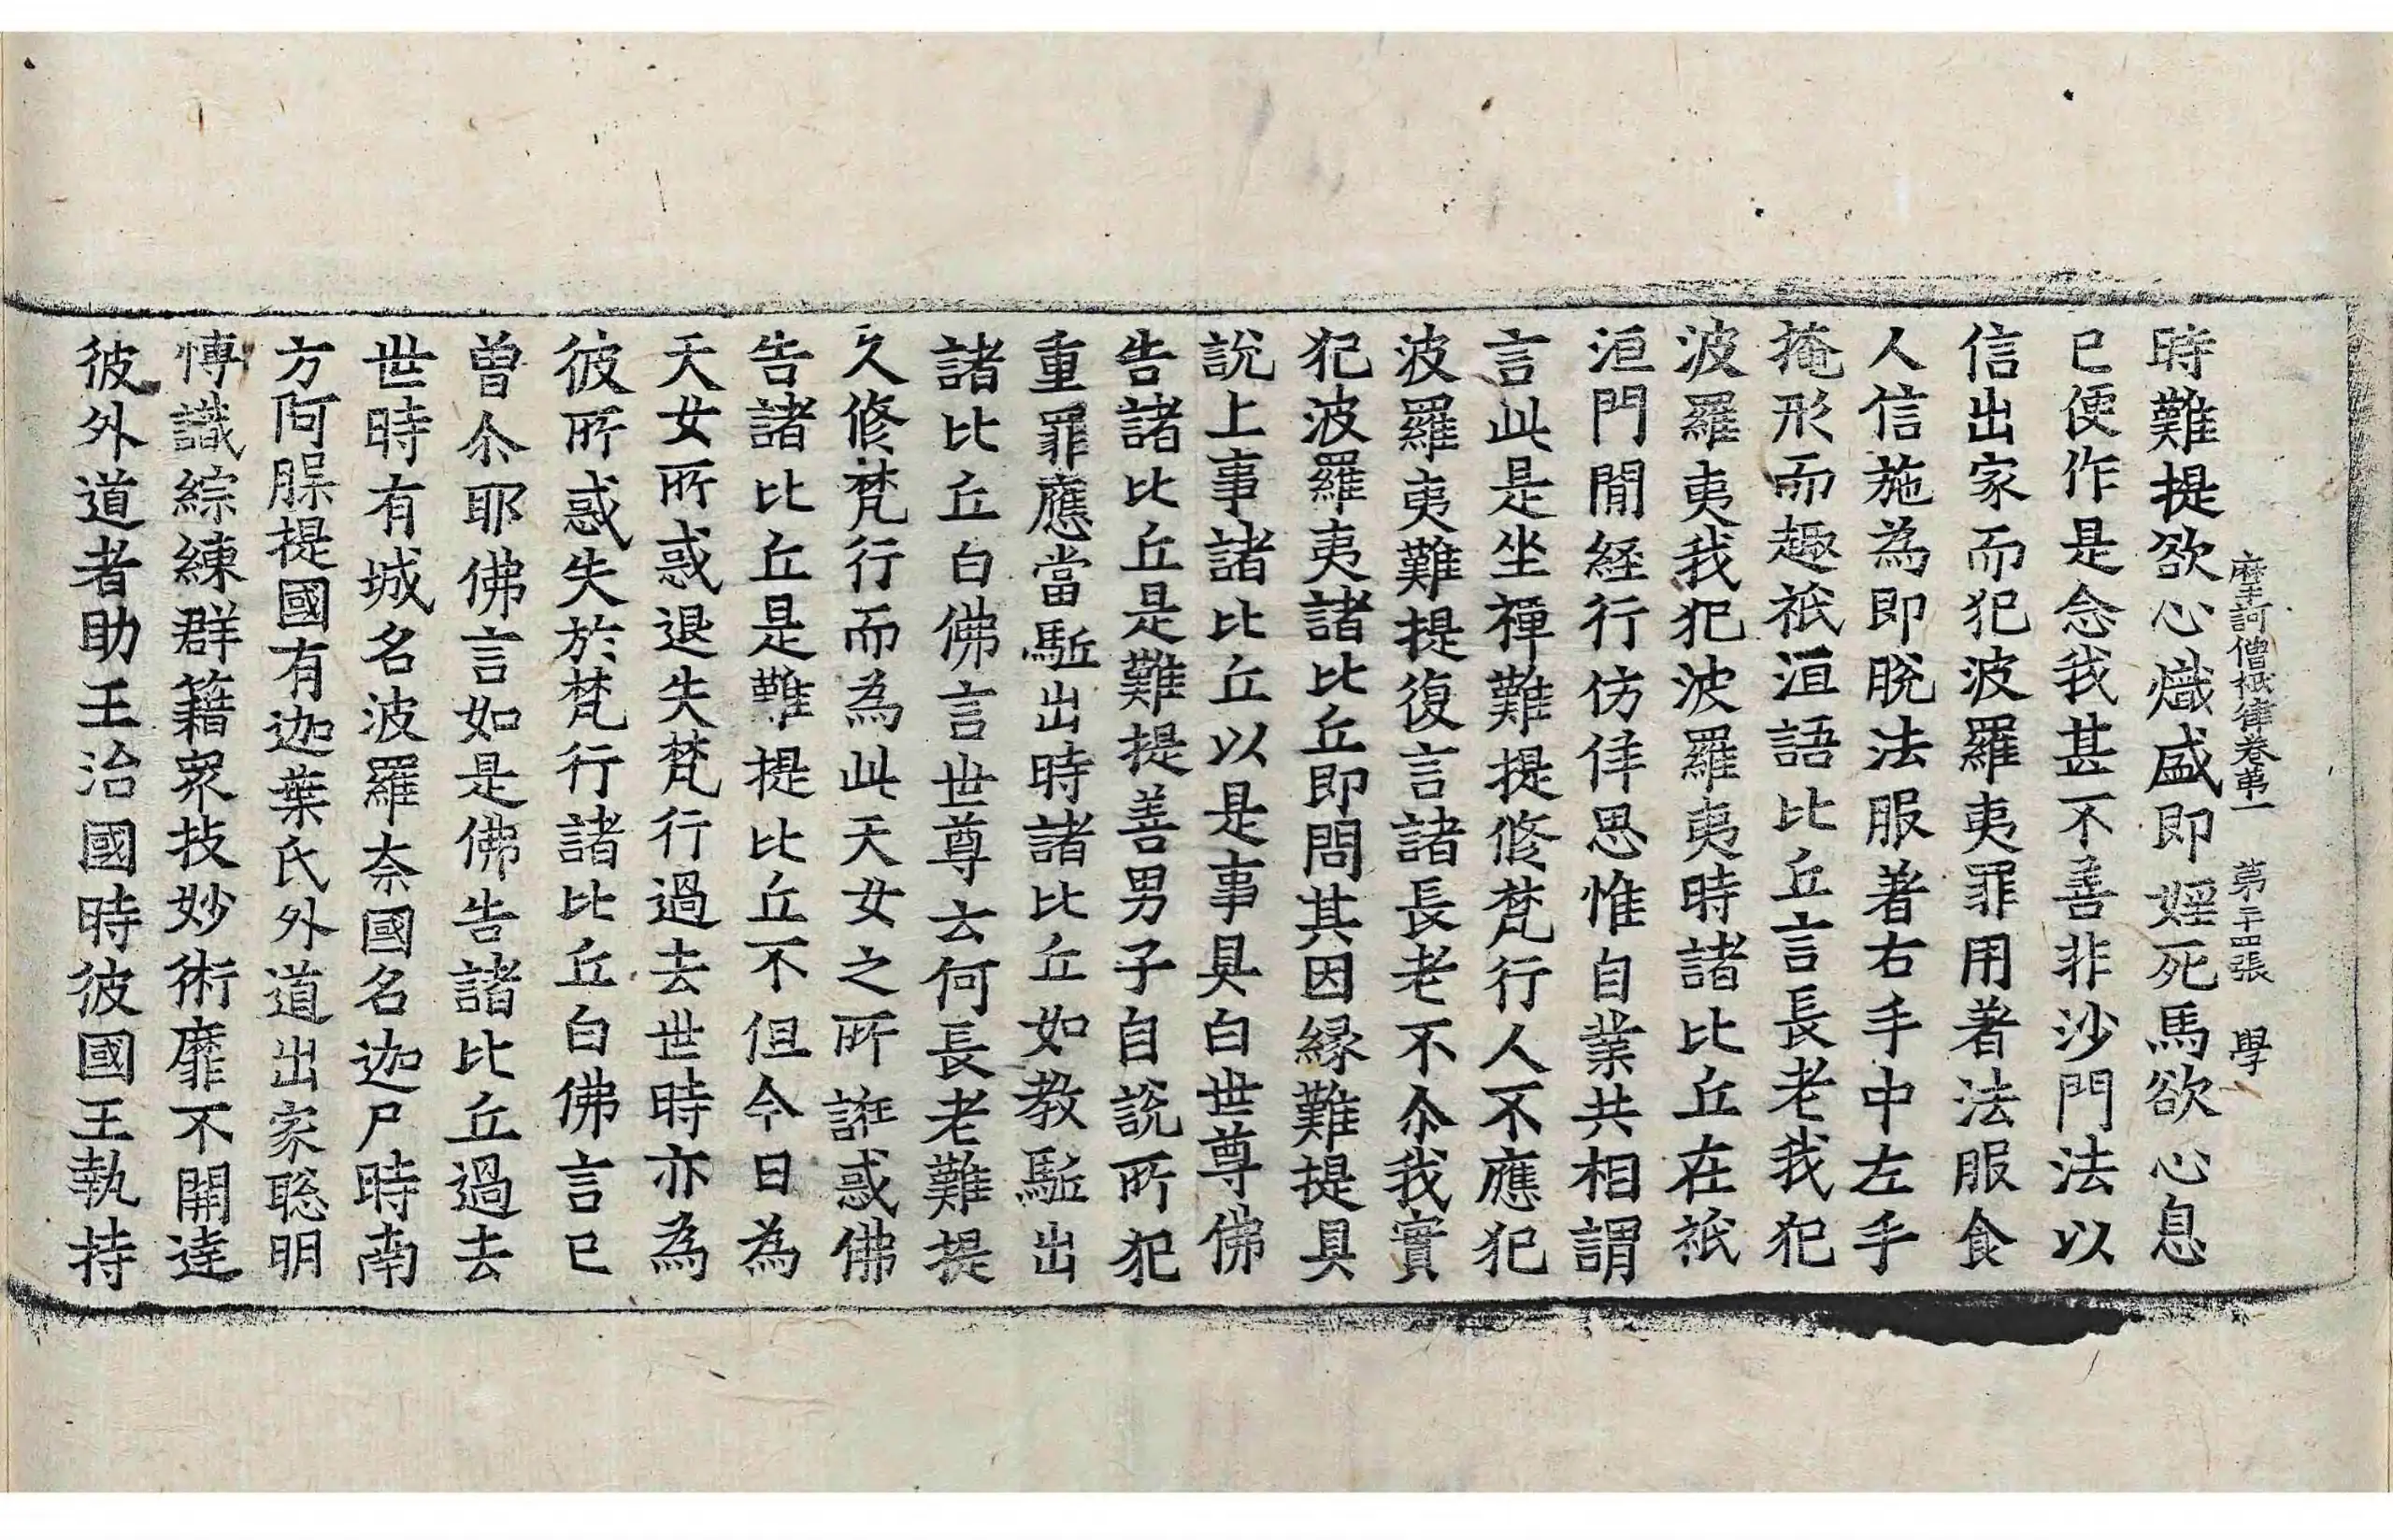 摩訶僧祇律卷第一　第二十四張　學
時難提欲心熾盛即婬死馬欲心息
已便作是念我甚不善非沙門法以
信出家而犯波羅夷罪用著法服食
人信施為即脫法服著右手中左手
掩形而趣祇洹語比丘言長老我犯
波羅夷我犯波羅夷時諸比丘在祇
洹門閒經行仿佯思惟自業共相謂
言此是坐禪難提修梵行人不應犯
波羅夷難提復言諸長老不尒我實
犯波羅夷諸比丘即問其因緣難提具
說上事諸比丘以是事具白世尊佛
告諸比丘是難提善男子自說所犯
重罪應當駈出時諸比丘如教駈出
諸比丘白佛言世尊云何長老難提
久修梵行而為此天女之所誑惑佛
告諸比丘是難提比丘不但今日為
天女所惑退失梵行過去世時亦為
彼所惑失於梵行諸比丘白佛言已
曾尒耶佛言如是佛告諸比丘過去
世時有城名波羅奈國名迦尸時南
方阿腂提國有迦葉氏外道出家聡明
慱識綜練群籍眾技妙術靡不開達
彼外道者助王治國時彼國王執持